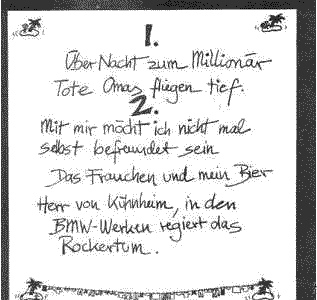 1.
Über Nacht zum Millionär
Tote Omas fliegen tief.
2.
Mit mir möcht ich nicht mal
selbst befreundet sein
Das Frauchen und mein Bier
Herr von Kühnheim, in den
BMW-Werken regiert das
Rockertum.